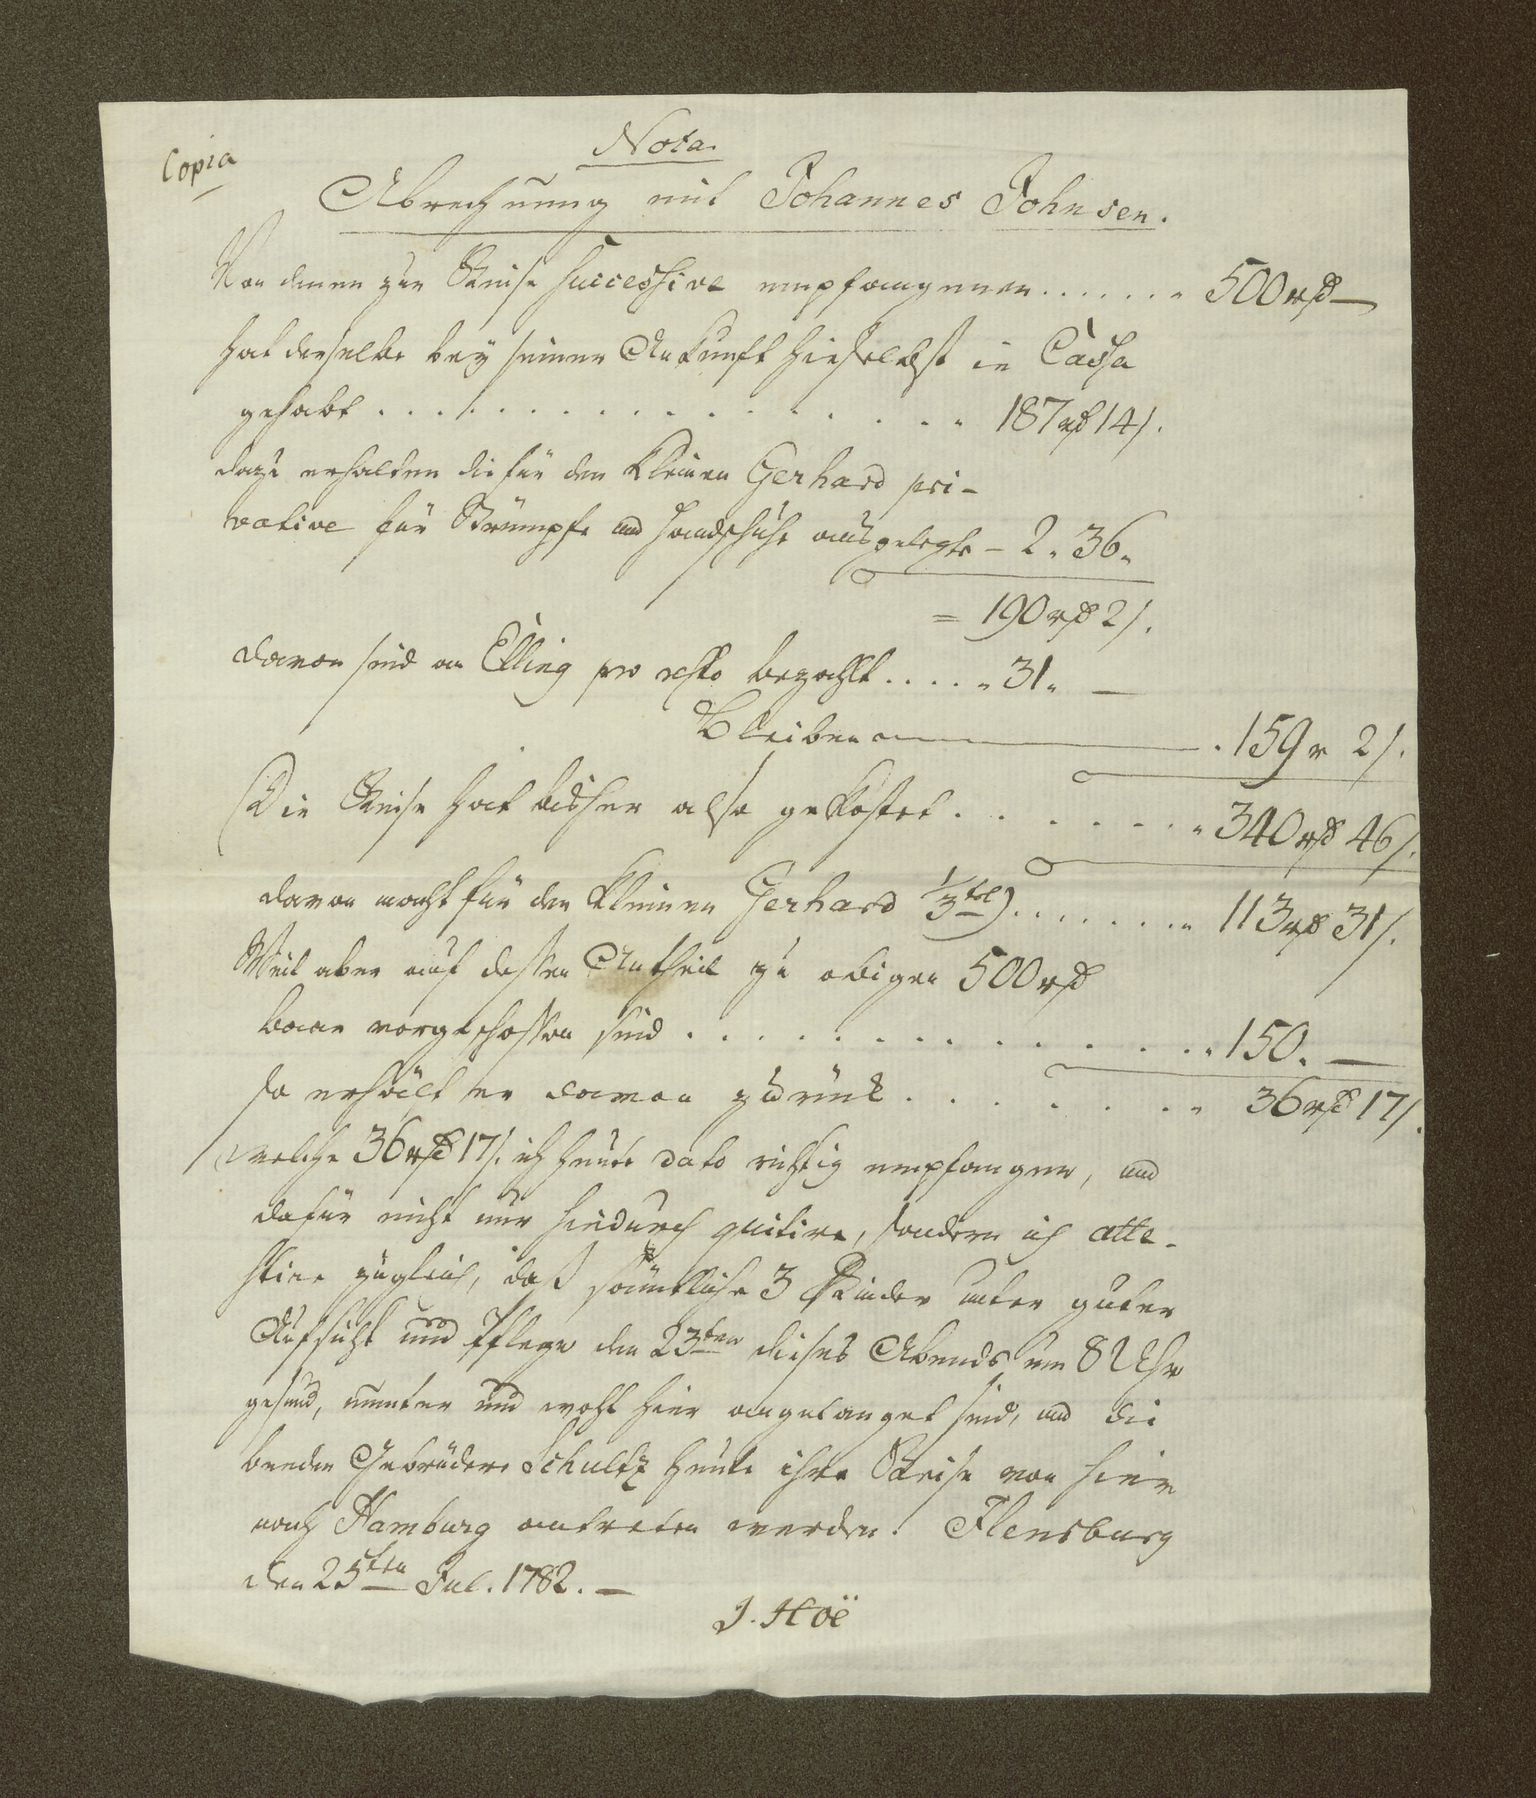 Copia
Nota.
Abrechnung mit Johannes Johnsen.
Von denen zur Reise successive empfangenen . . . . . . . 500 rß —
hat derselbe bey seiner Ankunft hieselbst in Cassa
gehabt . . . . . . . . . . . . . . . . . . 187 rß 14 ß.
dazu erhalten die für den kleinen Gerhard pri-
vative für Strümpfe und Handschuhe ausgelegte – 2 „ 36 „
= 190 rß 2 ß.
davon sind an Elling pro resto bezahlt . . . . „ 31 „ —
Bleiben — . 159 „ 2 ß.
Die Reise hat bisher also gekostet . . . . . . . . „ 340 rß 46 ß.
davon macht für den kleinen Gerhard 1/3tel) . . . . . . . „ 113 rß 31 ß.
Weil aber auf dessen Antheil zu obigen 500 rß
baar vorgeschossen sind . . . . . . . . . . . . . . „ 150. —
so erhält er davon zurück . . . . . . . . „ 36 rß 17 ß.
welche 36 rß 17 ß. ich heute dato richtig empfangen, und
dafür nicht nur hiedurch quitire, sondern ich atte-
stire zugleich, daß sämtliche 3 Kinder unter guter
Aufsicht und Pflege den 23ten dieses Abends um 8 Uhr
gesund, munter und wohl hier angelanget sind, und die
beeden Gebrüdere Schultz heute ihre Reise von hier
nach Hamburg antreten werden. Flensburg
den 25ten Jul. 1782. —
J. Hoë